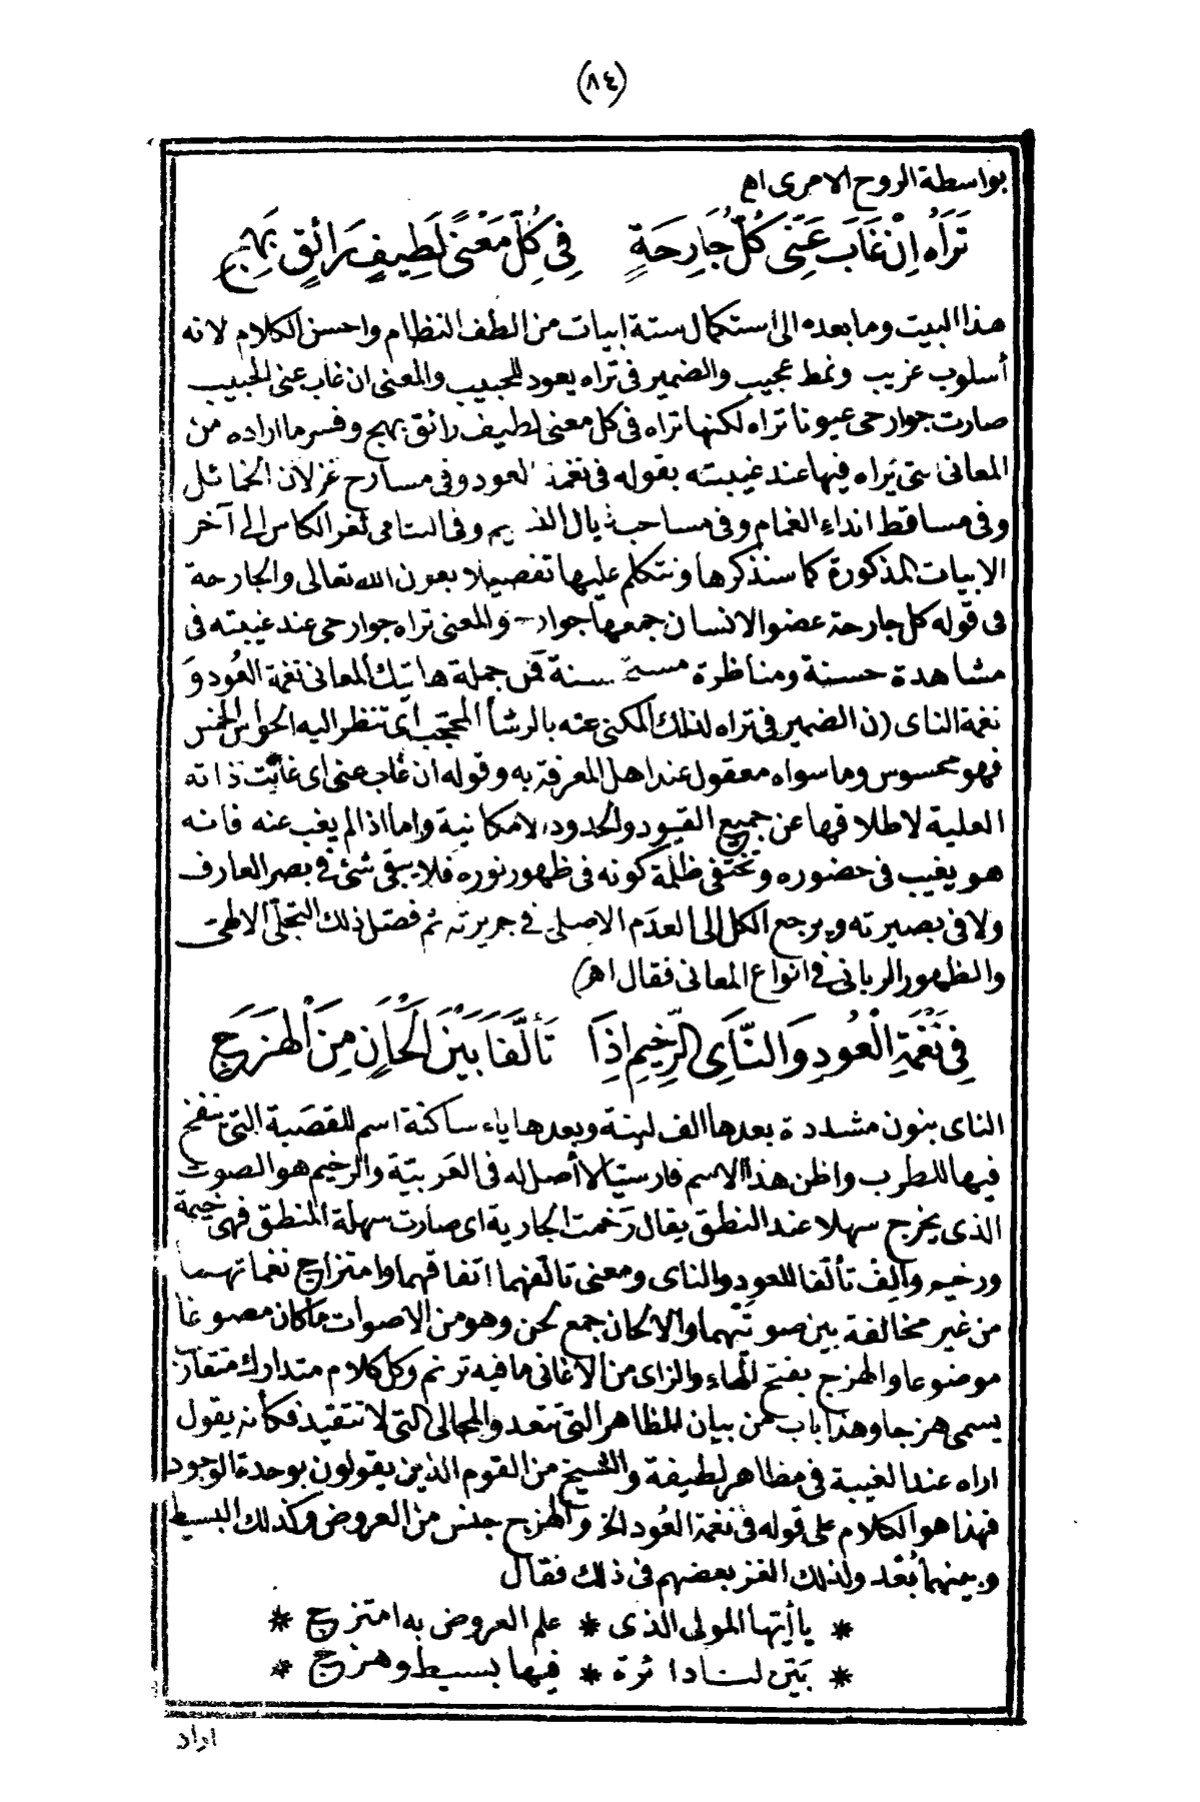 (٨٤)
بواسطة الروح الامرى اهـ
تَرَاهُ اِنْ غَابَ عَنِّى كُلُّ جَارِحَةٍ فِى كُلِّ مَعْنًى لَطِيفٍ رَائِقٍ بَهِجِ
هذا البيت وما بعده الى استكمال ستة ابيات من الطف النظام واحسن الكلام لانه
أسلوب غريب ونمط عجيب والضمير فى تراه يعود للحبيب والمعنى ان غاب عنى الحبيب
صارت جوارحى عيونا تراه لكنها تراه فى كل معنى لطيف رائق بهج وفسر ما اراده من
المعانى التى يَراه فيها عند غيبته بقوله فى نغمة العود وفى مسارح غزلان الخمائل
وفى مساقط انداء الغمام وفى مساحب اذيال النسيم وفى التثامى ثغر الكاس الى آخر
الابيات المذكورة كما سنذكرها ونتكلم عليها تفصيلا بعون الله تعالى والجارحة
فى قوله كل جارحة عضو الانسان جمعها جوارح والمعنى تراه جوارحى عند غيبته فى
مشاهدة حسنة ومناظرة مستحسنة فمن جملة هاتيك المعانى نغمة العُود وَ
نغمة الناى (ن الضمير فى تراه لذلك المكنى عنه بالرشأ المحتجب اى تنظر اليه الحواس الخمس
فهو محسوس وما سواه معقول عند اهل المعرفة به وقوله ان غاب عنى اى غابت ذاته
العلية لاطلاقها عن جميع القيود والحدود الامكانية واما اذا لم يغب عنه فانه
هو يغيب فى حضوره وتختفى ظلمة كونه فى ظهور نوره فلا يبقى شئ فى بصر العارف
ولا فى بصيرته ويرجع الكل الى العدَم الاصلى فى جريرته ثم فصّل ذلك التجلّى الالهى
والظهور الربانى فى انواع المعانى فقال اهـ)
فِى نَغْمَةِ الْعُودِ وَالنَّاىِ الرَّخِيمِ اِذَا تَأَلَّفَا بَيْنَ اَلْحَانٍ مِنَ الْهَزَجِ
الناى بنون مشددة بعدها الف لينة وبعدها ياء ساكنة اسم للقصَبة التى ينفخ
فيها للطرب واظن هذا الاسم فارسيّا لا أصل له فى العَربيّة والرخيم هو الصوت
الذى يخرج سهلا عند النطق يقال رَخمت الجارية اى صارت سهلة المنطق فهى رخيمة
ورخيم والِف تألّفا للعود والناى ومعنى تالّفهما اتفاقهما وامتزاج نغماتهما
من غير مخالفة بين صوتَيْهما والالحان جمع لحن وهو من الاصوات ما كان مصوغا
موضوعا والهزج بفتح الهاء والزاى من الاغانى ما فيه ترنم وكل كلام متدارك متقارب
يسمى هزجا وهذا باب من بيان المظاهر التى تتعدد والمجالى التى لا تتقيد فكأنه يقول
اراه عند الغيبة فى مظاهر لطيفة والشيخ من القوم الذين يقولون بوحدة الوجود
فهذا هو الكلام على قوله فى نغمة العُود الخ والهزج جنس من العروض وكذلك البسيط
وبينهما بُعْد ولذلك الغز بعضهم فى ذلك فقال
* يا أيّها المولى الذى * علم العروض به امتزج *
* بَيّن لنا دائرة * فيها بسيط وهزج *
اراد